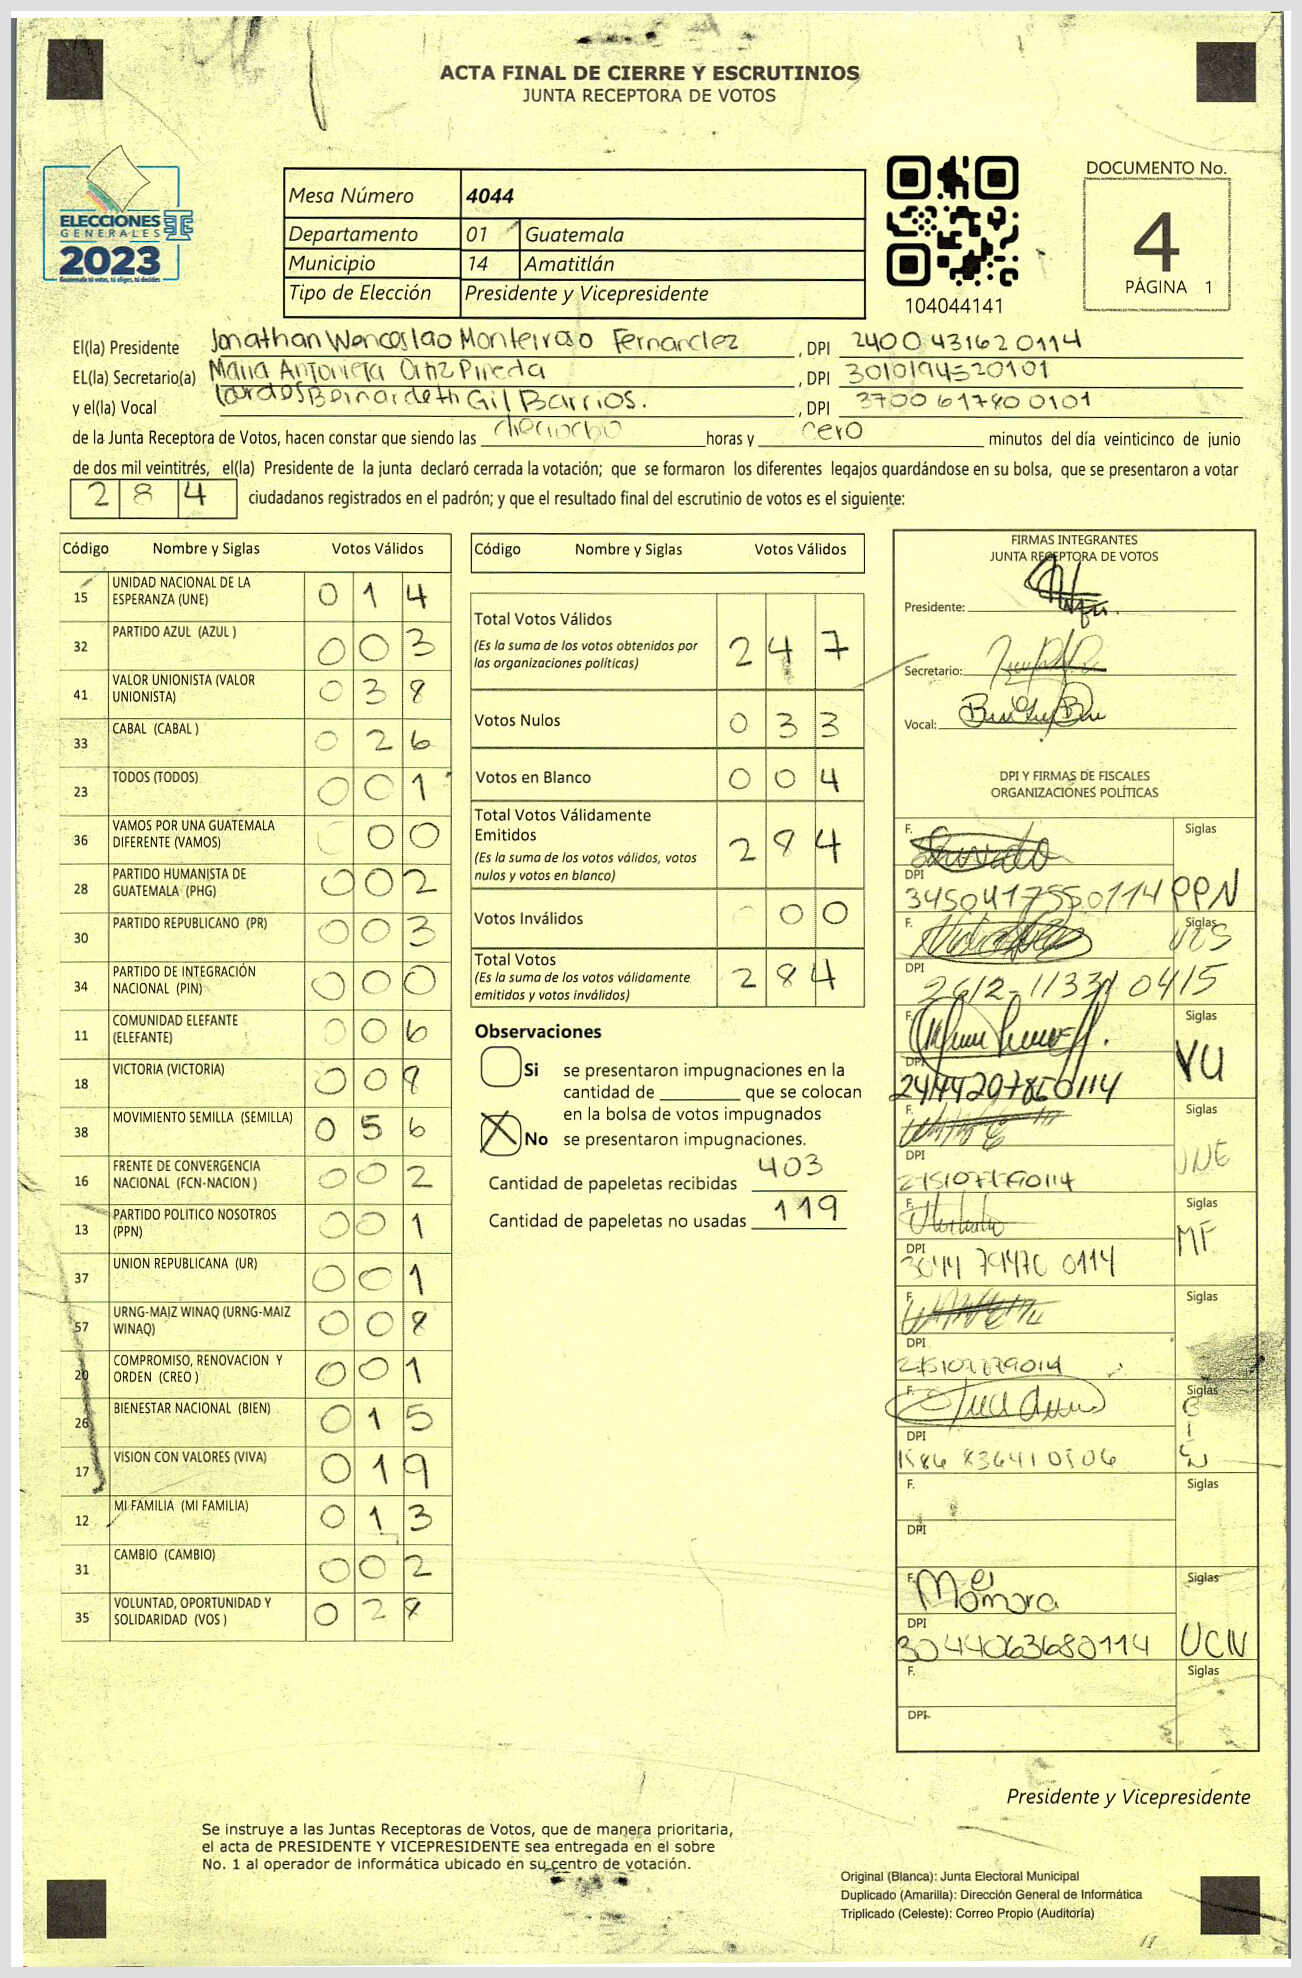 ACTA FINAL DE CIERRE Y ESCRUTINIOS
JUNTA RECEPTORA DE VOTOS
ELECCIONES
GENERALES
2023
Guatemala tú votas, tú eliges, tú decides
Mesa Número 4044
Departamento 01 Guatemala
Municipio 14 Amatitlán
Tipo de Elección Presidente y Vicepresidente
104044141
DOCUMENTO No.
4
PÁGINA 1
El(la) Presidente Jonathan Wenceslao Monterroso Fernandez, DPI 2400 43162 0114
EL(la) Secretario(a) Maria Antonieta Ortiz Pineda, DPI 3010194520101
y el(la) Vocal Lourdes Bernardeth Gil Barrios., DPI 3700 61780 0101
de la Junta Receptora de Votos, hacen constar que siendo las dieciocho horas y cero minutos del día veinticinco de junio
de dos mil veintitrés, el(la) Presidente de la junta declaró cerrada la votación; que se formaron los diferentes legajos guardándose en su bolsa, que se presentaron a votar
284 ciudadanos registrados en el padrón; y que el resultado final del escrutinio de votos es el siguiente:
Código Nombre y Siglas Votos Válidos
15 UNIDAD NACIONAL DE LA ESPERANZA (UNE) 014
32 PARTIDO AZUL (AZUL ) 003
41 VALOR UNIONISTA (VALOR UNIONISTA) 038
33 CABAL (CABAL ) 026
23 TODOS (TODOS) 001
36 VAMOS POR UNA GUATEMALA DIFERENTE (VAMOS) 000
28 PARTIDO HUMANISTA DE GUATEMALA (PHG) 002
30 PARTIDO REPUBLICANO (PR) 003
34 PARTIDO DE INTEGRACIÓN NACIONAL (PIN) 000
11 COMUNIDAD ELEFANTE (ELEFANTE) 006
18 VICTORIA (VICTORIA) 008
38 MOVIMIENTO SEMILLA (SEMILLA) 056
16 FRENTE DE CONVERGENCIA NACIONAL (FCN-NACION ) 002
13 PARTIDO POLITICO NOSOTROS (PPN) 001
37 UNION REPUBLICANA (UR) 001
57 URNG-MAIZ WINAQ (URNG-MAIZ WINAQ) 008
20 COMPROMISO, RENOVACION Y ORDEN (CREO ) 001
26 BIENESTAR NACIONAL (BIEN) 015
17 VISION CON VALORES (VIVA) 019
12 MI FAMILIA (MI FAMILIA) 013
31 CAMBIO (CAMBIO) 002
35 VOLUNTAD, OPORTUNIDAD Y SOLIDARIDAD (VOS ) 028
Código Nombre y Siglas Votos Válidos
Total Votos Válidos 247
(Es la suma de los votos obtenidos por
las organizaciones políticas)
Votos Nulos 033
Votos en Blanco 004
Total Votos Válidamente
Emitidos 284
(Es la suma de los votos válidos, votos
nulos y votos en blanco)
Votos Inválidos 000
Total Votos 284
(Es la suma de los votos válidamente
emitidos y votos inválidos)
Observaciones
Si se presentaron impugnaciones en la
cantidad de ________ que se colocan
en la bolsa de votos impugnados
X No se presentaron impugnaciones.
Cantidad de papeletas recibidas 403
Cantidad de papeletas no usadas 119
FIRMAS INTEGRANTES
JUNTA RECEPTORA DE VOTOS
Presidente:
Secretario:
Vocal:
DPI Y FIRMAS DE FISCALES
ORGANIZACIONES POLÍTICAS
F. Siglas
DPI
3450417550114 PPN
F. Siglas
DPI VOS
2612-11331 0415
F. Siglas
DPI VU
2444207850114
F. Siglas
DPI UNE
F. Siglas
DPI MF
3044 79476 0114
F. Siglas
DPI
F. Siglas
DPI BIEN
F. Siglas
DPI
F. Siglas
DPI
3044063680114 UCN
F. Siglas
DPI
Presidente y Vicepresidente
Se instruye a las Juntas Receptoras de Votos, que de manera prioritaria,
el acta de PRESIDENTE Y VICEPRESIDENTE sea entregada en el sobre
No. 1 al operador de informática ubicado en su centro de votación.
Original (Blanca): Junta Electoral Municipal
Duplicado (Amarilla): Dirección General de Informática
Triplicado (Celeste): Correo Propio (Auditoría)